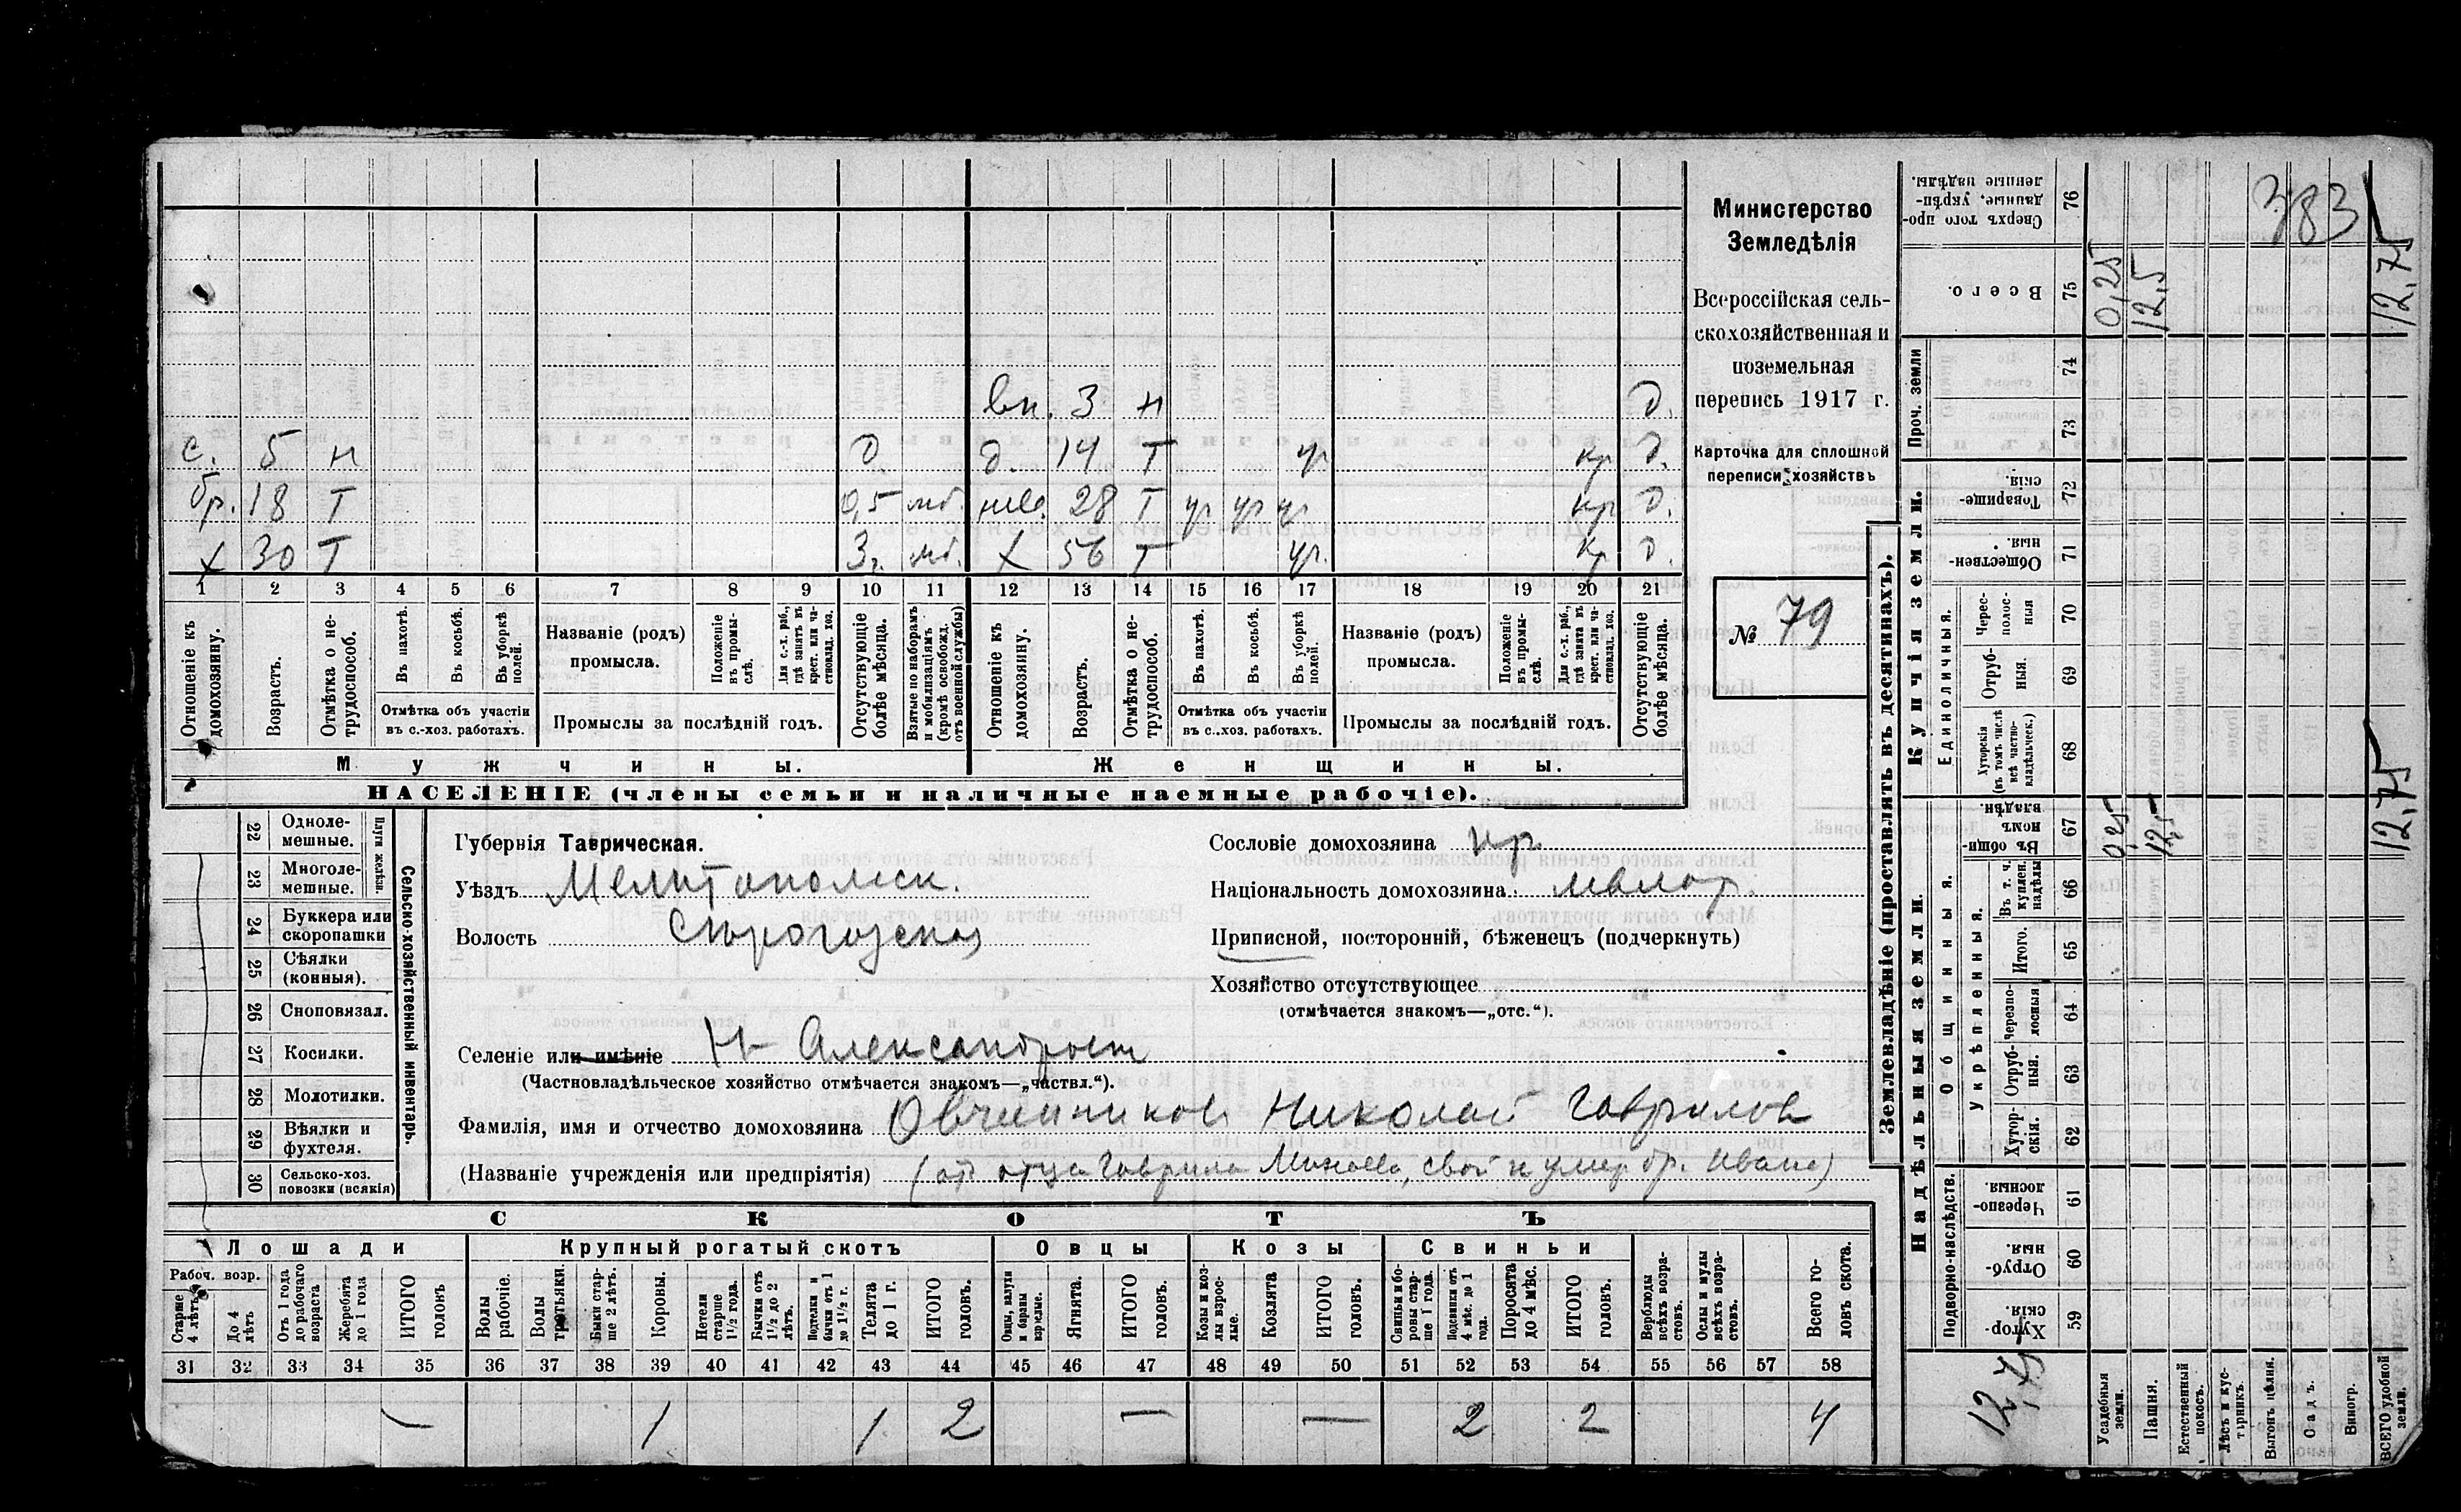 с. 5 н д
бр. 18 Т 0,5 мб.
х 30 Т 3г. мб.
вн. 3 н д.
д. 14 Т ур кр д.
нев. 28 Т ур ур ур кр д.
х 56 Т ур. кр д.
1 2 3 4 5 6 7 8 9 10 11 12 13 14 15 16 17 18 19 20 21
Отношеніе къ домохозяину.
Возрастъ.
Отмѣтка о нетрудоспособ.
Въ пахотѣ.
Въ косьбѣ.
Въ уборкѣ полей.
Отмѣтка объ участіи
въ с.-хоз. работахъ.
Названіе (родъ)
промысла.
Положеніе въ промыслѣ.
Для с.-х. раб., гдѣ занятъ въ крест. или частновлад. хоз.
Промыслы за послѣдній годъ.
Отсутствующіе болѣе мѣсяца.
Взятые по наборамъ и мобилизаціямъ (кромѣ освобожд. отъ военной службы)
Отношеніе къ домохозяину.
Возрастъ.
Отмѣтка о нетрудоспособ.
Въ пахотѣ.
Въ косьбѣ.
Въ уборкѣ полей.
Отмѣтка объ участіи
въ с.-хоз. работахъ.
Названіе (родъ)
промысла.
Положеніе въ промыслѣ.
Для с.-х. раб., гдѣ занята въ крест. или частновлад. хоз.
Промыслы за послѣдній годъ.
Отсутствующіе болѣе мѣсяца.
Мужчины.
Женщины.
НАСЕЛЕНІЕ (члены семьи и наличные наемные рабочіе).
Министерство
Земледѣлія
Всероссійская сель-
скохозяйственная и
поземельная
перепись 1917 г.
Карточка для сплошной
переписи хозяйствъ
№ 79
22 Одноле-
мешные.
23 Многоле-
мешные.
Плуги желѣзн.
24 Буккера или
скоропашки
25 Сѣялки
(конныя).
26 Сноповязал.
27 Косилки.
28 Молотилки.
29 Вѣялки и
фухтеля.
30 Сельско-хоз.
повозки (всякія)
Сельско-хозяйственный инвентарь.
Губернія Таврическая.
Уѣздъ Мелитопольск.
Волость Сѣрогозская
Селеніе или имѣніе Н- Александров
(Частновладѣльческое хозяйство отмѣчается знакомъ—„частвл.“).
Фамилія, имя и отчество домохозяина Овчинников Николай Гаврилов
(Названіе учрежденія или предпріятія) (от отца Гаврила свой и умер бр. Ивана)
Сословіе домохозяина кр
Національность домохозяина малор.
Приписной, посторонній, бѣженецъ (подчеркнуть)
Хозяйство отсутствующее
(отмѣчается знакомъ—„отс.“).
СКОТЪ
Лошади
Крупный рогатый скотъ
Овцы
Козы
Свиньи
Рабоч. возр.
Старше 4 лѣтъ
До 4 лѣтъ
Отъ 1 года до рабочаго возраста
Жеребята до 1 года
ИТОГО головъ
Волы рабочіе.
Волы третьяки.
Быки старше 2 лѣтъ.
Коровы.
Нетели старше 1½ года.
Бычки отъ 1½ до 2 лѣтъ.
Подтелки и бычки отъ 1 до 1½ г.
Телята до 1 г.
ИТОГО головъ.
Овцы, валухи и бараны взрослые.
Ягнята.
ИТОГО головъ.
Козы и козлы взрослые.
Козлята
ИТОГО головъ.
Свиньи и боровы старше 1 года.
Подсвинки отъ 4 мѣс. до 1 года.
Поросята до 4 мѣс.
ИТОГО головъ.
Верблюды всѣхъ возрастовъ.
Ослы и мулы всѣхъ возрастовъ.
Всего головъ скота.
31 32 33 34 35 36 37 38 39 40 41 42 43 44 45 46 47 48 49 50 51 52 53 54 55 56 57 58
— 1 1 2 — — 2 2 4
Землевладѣніе (проставлять въ десятинахъ).
Купчія земли.
Надѣльныя земли.
Сверхъ того проданные, укрѣпленные надѣлы. 76
383
Всего. 75 0,25 12,5 12,75
Проч. земли
74
73
Товарищескія. 72
Общественныя. 71
Единоличныя.
Чересполосныя 70
Отрубныя. 69
Хуторскія (въ томъ числѣ всѣ частновладѣльческ.) 68
Общинныя.
Въ общинномъ владѣн. 67 0,25 12,5 12,75
Въ т. ч. куплен. надѣлы 66
Укрѣпленныя.
Итого. 65
Черезполосныя 64
Отрубныя. 63
Хуторскія. 62
Подворно-наслѣдств.
Черезполосныя 61
Отрубныя. 60
Хуторскія. 59
12,75
Усадебныя земли.
Пашня.
Естественный покосъ.
Лѣсъ и кустарникъ.
Выгонъ цѣлин.
Садъ.
Виногр.
ВСЕГО удобной земли.